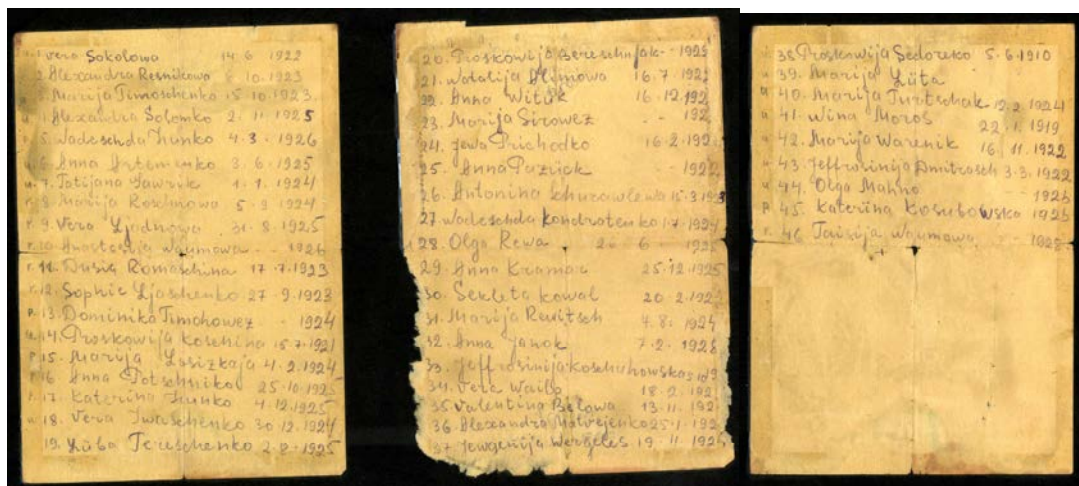 1. Vera Sokolowa 14 6 1922
2. Alexandra Resnikowa 8. 10. 1923
3. Marija Timoschenko 15. 10. 1923
Alexandra Solomko 2. 11 1925
5. Nadeschda Zunko 4. 3. 1926
6. Anna Artemenko 3. 6. 1925
7. Tatijana Lawrik 1. 1. 1924
8. Marija 5. 3 1924
9. Vera Ljadnowa 31. 8 1925
10. Anastasija Naumowa - - 1926
11. Dusia Romaschina 17. 7. 1923
12. Sophie Ljaschenko 27. 9. 1923
13. Dominika Timohowez - - 1924
14. Proskowija Koschina 15. 7. 1921
15. Marija Losizkaja 4. 2. 1924
16 Anna Potschnikol 25. 10. 1925
17. Katerina Zunko 4. 12. 1925
18. Vera Iwaschenko 30. 12. 1924
19. Lüba Tereschenko 2. 2. 1925
20. Proskowija Bereschnjak - 1925
21. Natalija Klimowa 16. 7. 1922
22. Anna Witük 16. 12. 192
23. Marija Sirowez - - 192
24. Jewa Prichodko 16. 2. 192
25. Anna Pazück - - 1922
26. Antonina Schurawlewa 15. 3. 1923
27. Nadeschda Kondrotenko 1. 7. 1924
28. Olga Rewa 26 6 1925
29. Anna Kramar 25. 12. 1925
30. Sekleta Kowal 20 2. 192
31. Marija Rewitsch 4. 8. 1924
32. Anna Janok 7. 2. 1926
33. Jeffrosinija
34. Vera Wailo 18. 2. 192
35. Valentina Belowa 13. 11. 192
36 Alexandra Matwejenko 25. 1. 192
37 Jewgenija Wergeles 19. 11. 192
38. Proskowija Sedoreko 5. 6. 1910
39. Marija Lüta
40. Marija Turtschak 12. 2. 1924
41. Nina Moros 22. 1. 1919
42. Marija Warenik 16. 11. 1922
43. Jeffrosinija Dmitrosch 3. 3. 1922
44. Olga Mahno - - 1926
45. Katerina Kosubowska 1925
46. Taisija Naumowa - - 1928